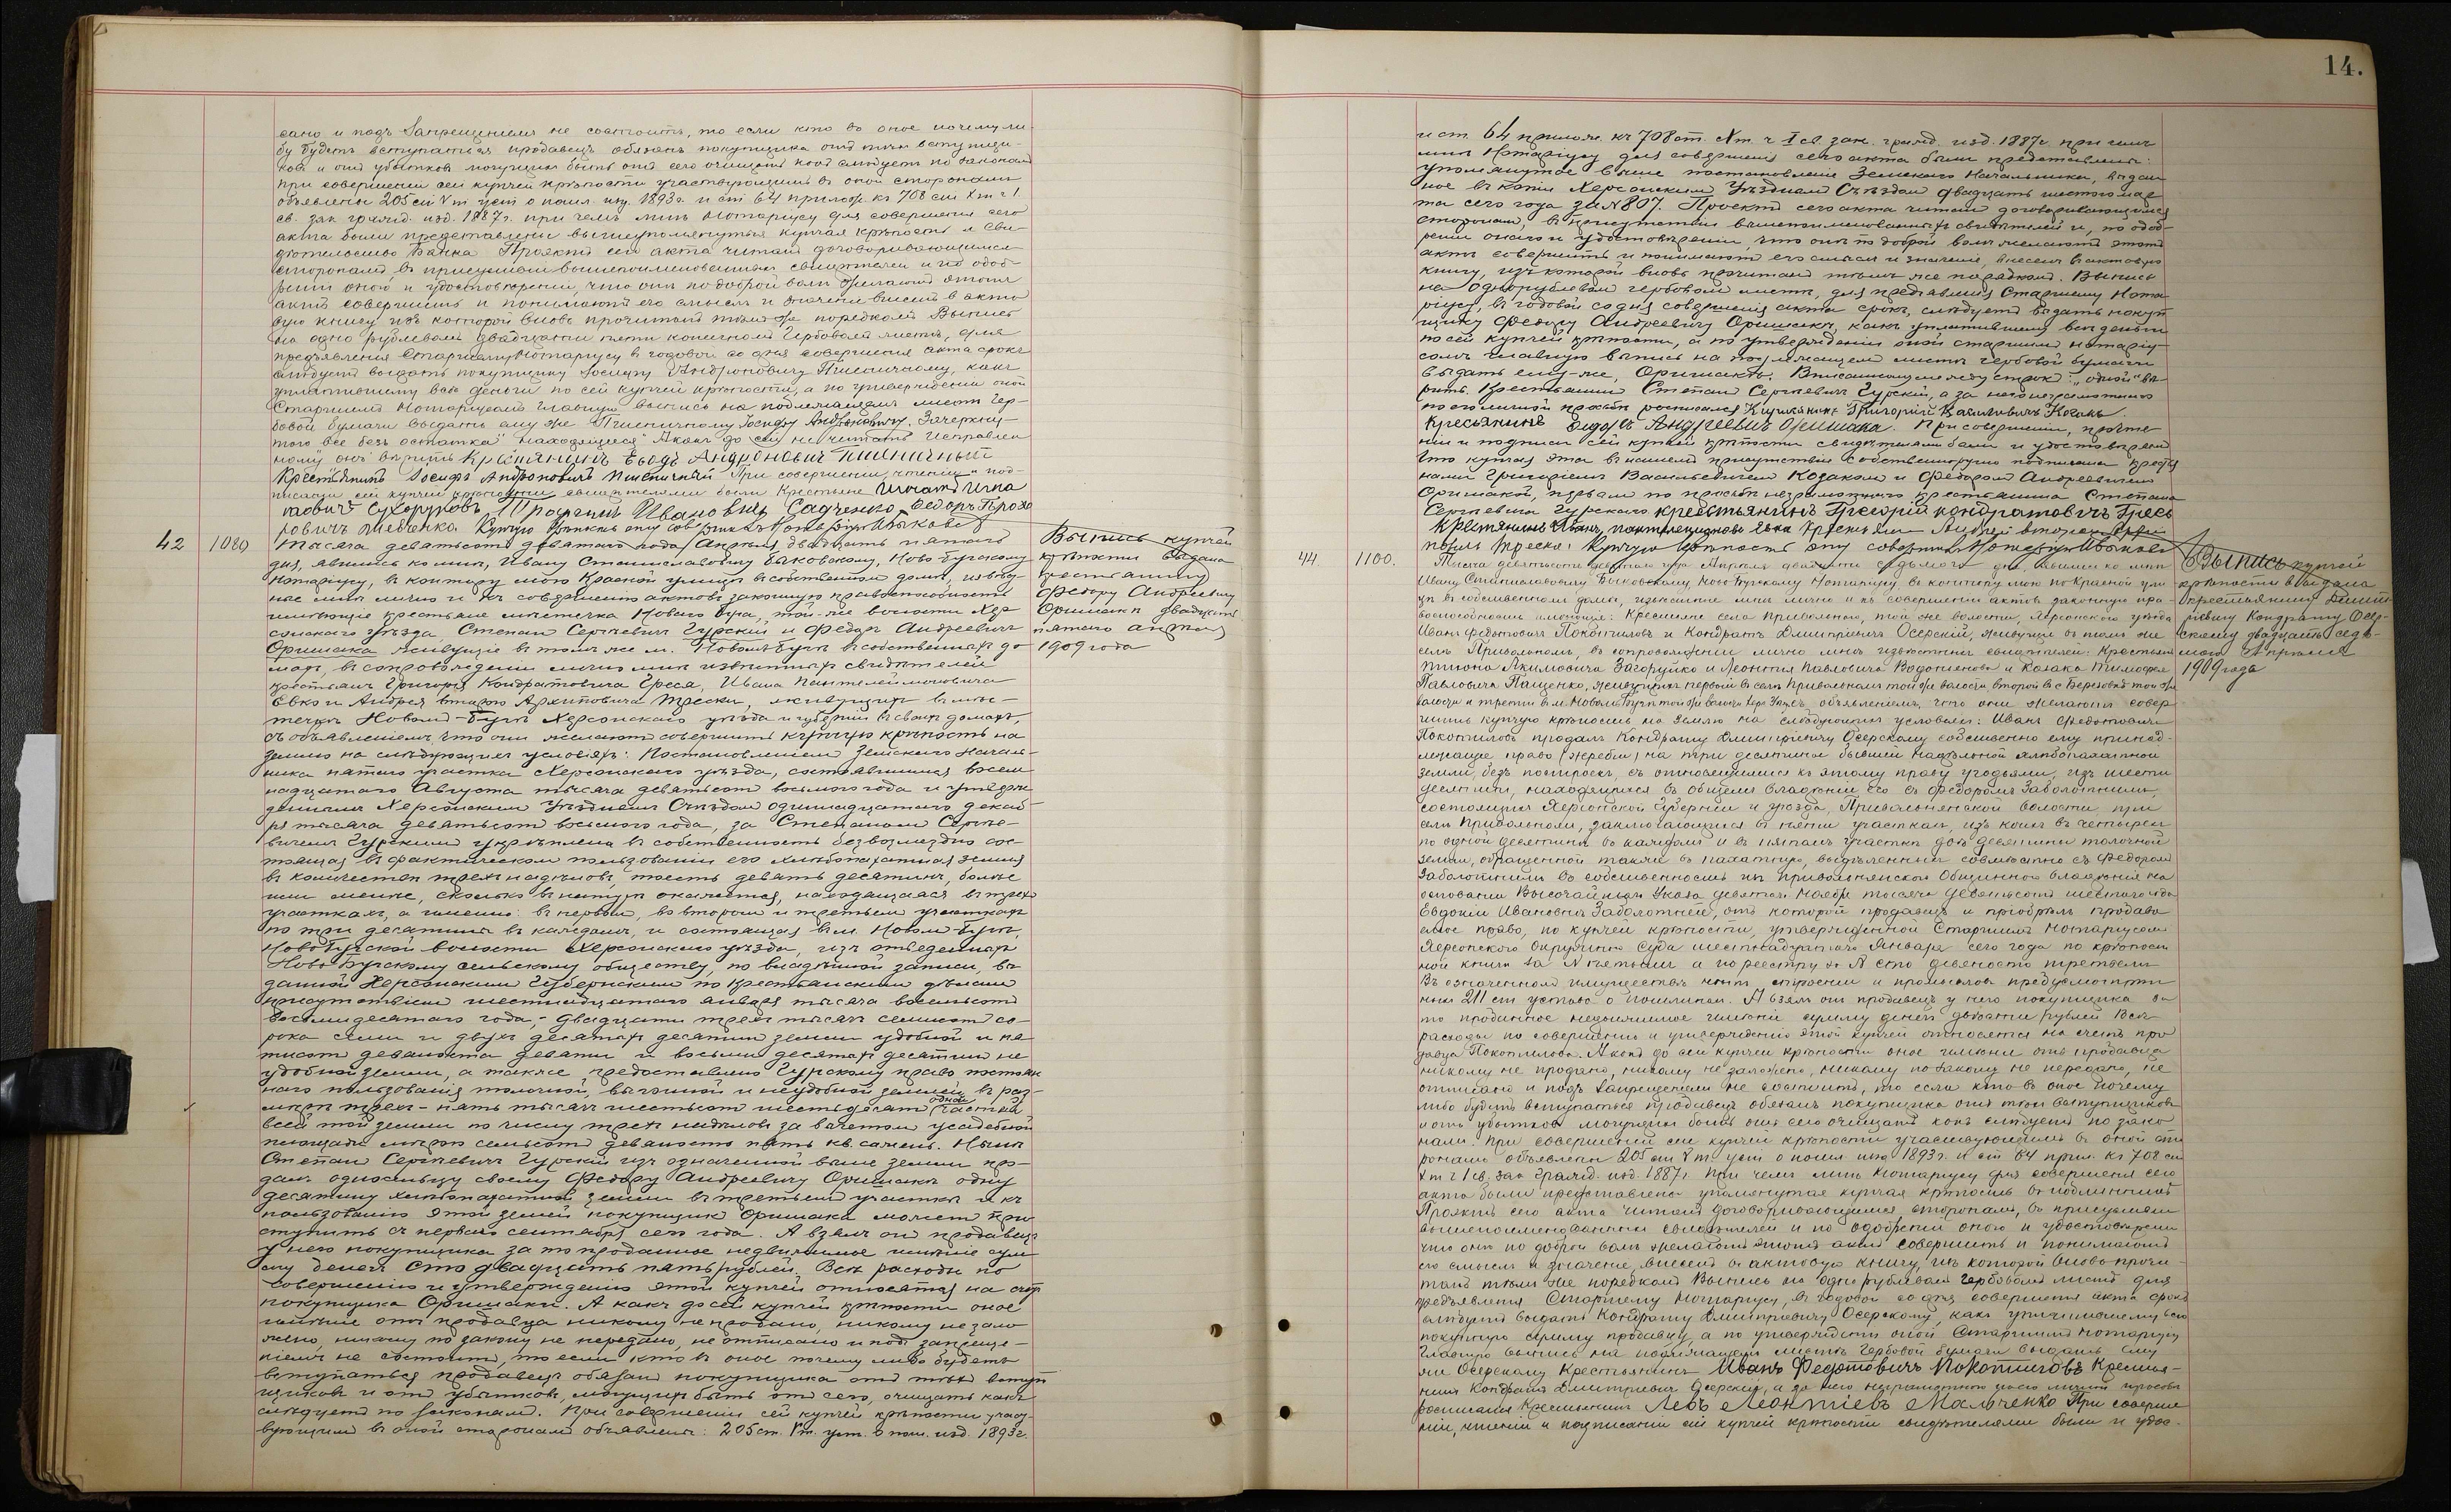 сано и подъ запрещеніемъ не состоитъ, то если кто въ оное почему ли-
бо будетъ вступаться продавецъ обязанъ покупщика отъ тѣхъ вступщи-
ковъ и отъ убытковъ могущихъ быть отъ сего очищать какъ слѣдуетъ по законамъ
При совершеніи сей купчей крѣпости участвующимъ въ оной сторонамъ
объявлены 205 ст V т уст о пошл. изд. 1893 г. и ст 64 прилож. къ 708 ст X т ч 1
св. зак. гражд. изд. 1887 г. при чемъ мнѣ Нотаріусу для совершенія сего
акта были представлены вышеупомянутыя купчая крѣпость и сви-
дѣтельство Банка Проектъ сего акта читанъ договаривающимся
сторонамъ, въ присутствіи вышепоименованныхъ свидѣтелей и по одоб-
реніи оного и удостовѣреніи, что они по доброй волѣ желаютъ этотъ
актъ совершить и понимаютъ его смыслъ и значеніе внесенъ въ акто-
вую книгу изъ которой вновь прочитанъ тѣмъ же порядкомъ Выпись
на одно рублевомъ двадцати пяти копѣечномъ гербовомъ листѣ, для
предъявленія Старшему Нотаріусу въ годовой со дня совершенія акта срокъ
слѣдуетъ выдать покупщику Іосифу Андроновичу Пшеничному, какъ
уплатившему всѣ деньги по сей купчей крѣпости, а по утвержденіи оной
Старшимъ Нотаріусомъ главную выпись на подлежащемъ листѣ гер-
бовой бумаги выдать ему же Пшеничному Іосифу Андроновичу. Зачеркну-
тое все безъ остатка находящееся "А какъ до сей не читать Исправлен
ному онъ вѣрить Крестьянинъ Іосифъ Андроновичъ Пшеничный
Крестьянинъ Іосифъ Андроновичъ Пшеничный При совершеніи, чтеніи и под-
писаніи сей купчей крѣпости свидѣтелями были Крестьяне Игнатъ Игна
тьевичъ Сухоруковъ, Прокофій Ивановичъ Садченко, Ѳедоръ Прохо
ровичъ Шевченко Купчую крѣпость эту совершилъ Нотаріусъ Быковскій
42 1089 Тысяча девятьсотъ девятаго года Апрѣля двадцать пятаго
дня, явились ко мнѣ, Ивану Станиславовичу Быковскому, Ново-Бугскому
Нотаріусу, въ контору мою Красной улицѣ въ собственномъ домѣ, извѣст-
ные мнѣ лично и къ совершенію актовъ законную правоспособность
имѣющіе крестьяне мѣстечка Новаго Буга, той-же волости Хер
сонскаго уѣзда, Степанъ Сергѣевичъ Гурскій и Федоръ Андреевичъ
Оришака живущіе въ томъ же м. Новомъ-Бугѣ въ собственныхъ до-
махъ, въ сопровожденіи лично мнѣ извѣстныхъ свидѣтелей
крестьянъ Григорія Кондратовича Греся, Ивана Пантелеймоновича
Евко и Андрея втораго Архиповича Трески, живущихъ въ мѣс-
течкѣ Новомъ-Бугѣ Херсонскаго уѣзда и губерніи въ своихъ домахъ,
съ объявленіемъ что они желаютъ совершить купчую крѣпость на
землю на слѣдующихъ условіяхъ: Постановленіемъ Земскаго Началь-
ника пятаго участка Херсонскаго уѣзда, состоявшимся восем
надцатаго Августа тысяча девятьсотъ восьмого года и утверж-
деннымъ Херсонскимъ Уѣзднымъ Съѣздомъ одиннадцатаго декаб-
ря тысяча девятьсотъ восьмого года, за Степаномъ Сергѣе-
вичемъ Гурскимъ укрѣплена въ собственность безвозмездно сос-
тоящая въ фактическомъ пользованіи его хлѣбопахатная земля
въ количествѣ трехъ надѣловъ, то есть девять десятинъ, болѣе
или менѣе, сколько въ натурѣ окажется, находящаяся въ трехъ
участкахъ, а именно: въ первомъ, во второмъ и третьемъ участкахъ
по три десятины въ каждомъ, и состоящая въ м. Новомъ-Бугѣ,
Новобугской волости Херсонскаго уѣзда, изъ отведенныхъ
Ново-Бугскому сельскому обществу, по владѣнной записи, вы-
данной Херсонскимъ Губернскимъ по крестьянскимъ дѣламъ
присутствіемъ шестнадцатаго января тысяча восемьсотъ
восьмидесятаго года, двадцати трехъ тысячъ семисотъ со-
рока семи и двухъ десятыхъ десятинъ земли удобной и пя-
тисотъ девяноста девяти и восьми десятыхъ десятинъ не
удобной земли, а также предоставлено Гурскому право постоян-
наго пользованія толочной, выгонной и неудобной землей въ раз-
мѣрѣ трехъ-пять тысячъ шестьсотъ шестьдесятъ одной частей
всей той земли по числу трехъ надѣловъ за вычетомъ усадебной
площади мѣрою семьсотъ девяносто пять кв. сажень. Нынѣ
Степанъ Сергѣевичъ Гурскій изъ означенной выше земли про-
далъ односельцу своему Федору Андреевичу Оришакѣ одну
десятину хлѣбопахатной земли въ третьемъ участкѣ и къ
пользованію этой землей покупщикъ Оришака можетъ при-
ступить съ перваго сентября сего года. А взялъ онъ продавецъ
у него покупщика за то проданное недвижимое имѣніе сум
му денегъ сто двадцать пять рублей. Всѣ расходы по
совершенію и утвержденію этой купчей относятся на счетъ
покупщика Оришаки. А какъ до сей купчей крѣпости оное
имѣніе отъ продавца никому не продано, никому не зало
жено, никому по закону не передано, не отписано и подъ запреще-
ніемъ не состоитъ, то если кто въ оное почему либо будетъ
вступаться продавецъ обязанъ покупщика отъ тѣхъ вступ
щиковъ и отъ убытковъ, могущихъ быть отъ сего, очищать какъ
слѣдуетъ по законамъ. При совершеніи сей купчей крѣпости участ
вующимъ въ оной сторонамъ объявлены: 205 ст. V т. уст. о пош. изд. 1893 г.
Выпись купчей
крѣпости выдана
крестьянину
Федору Андреевичу
Оришакѣ двадцать
пятаго апрѣля
1909 года
14.
и ст. 64 прилож. къ 708 ст. X т. ч I св. зак. гражд. изд. 1887 г. при чемъ
мнѣ Нотаріусу для совершенія сего акта были представлены:
упомянутое выше постановленіе Земскаго Начальника, выдан
ное въ копіи Херсонскимъ Уѣзднымъ Съѣздомъ двадцать шестого мар
та сего года за № 807. Проектъ сего акта читанъ договаривающимся
сторонамъ, въ присутствіи вышепоименованныхъ свидѣтелей и, по одоб-
реніи оного и удостовѣреніи, что они по доброй волѣ желаютъ этотъ
актъ совершить и понимаютъ его смыслъ и значеніе, внесенъ въ актовую
книгу, изъ которой вновь прочитанъ тѣмъ же порядкомъ. Выпись
на однорублевомъ гербовомъ листѣ, для предъявленія Старшему Нота
ріусу, въ годовой со дня совершенія акта срокъ, слѣдуетъ выдать покуп
щику Федору Андреевичу Оришакѣ, какъ уплатившему всѣ деньги
по сей купчей крѣпости, а по утвержденіи оной старшимъ нотаріу-
сомъ главную выпись на подлежащемъ листѣ гербовой бумаги
выдать ему-же, Оришакѣ. Вписанному между строкъ: "одной" вѣ-
рить. Крестьянинъ Степанъ Сергѣевичъ Гурскій, а за него неграмотнаго
по его личной просьбѣ росписался Григорій Васильевичъ Козакъ
Крестьянинъ Федоръ Андреевичъ Оришака. При совершеніи, прочте-
ніи и подписи сей купчей крѣпости свидѣтелями были и удостовѣряемъ
что купчая эта въ нашемъ присутствіи собственноручно подписана крестья
нами Григоріемъ Васильевичемъ Козакомъ и Федоромъ Андреевичемъ
Оришакой, первымъ по просьбѣ неграмотнаго крестьянина Степана
Сергѣевича Гурскаго крестьянинъ Григорій Кондратовичъ Гресь
Крестянинъ Иванъ Евко Крестьянинъ Андрей второй
Треска. Купчую крѣпость эту совершилъ Нотаріусъ Быковскій
44. 1100. Тысяча девятьсотъ девятаго года Апрѣля двадцать седьмого дня, явились ко мнѣ
Ивану Станиславовичу Быковскому, Ново-Бугскому Нотаріусу въ контору мою по Красной ули
цѣ въ собственномъ домѣ, извѣстные мнѣ лично и къ совершенію актовъ законную пра-
воспособность имѣющіе: Крестьяне села Привольнаго, той же волости, Херсонскаго уѣзда
Иванъ Федотовичъ Покотиловъ и Кондратъ Дмитріевичъ Осерскій, живущіе въ томъ же
селѣ Привольномъ, въ сопровожденіи лично мнѣ извѣстныхъ свидѣтелей: Крестьянъ
Акимовича Загоруйко и Леонтія Павловича Водопьянова и Козака Тимофея
Павловича Пащенко, живущихъ первый въ селѣ Привольномъ той же волости, второй въ с Березовкѣ той же
волости и третій въ м. Новомъ Бугѣ той же волости Хер. Уѣзда, объявленіемъ, что они желаютъ совер
шить купчую крѣпость на землю на слѣдующихъ условіяхъ: Иванъ Федотовичъ
Покотиловъ продалъ Кондрату Дмитріевичу Осерскому собственно ему принад-
лежащее право (жеребій) на три десятины бывшей надѣльной хлѣбопахатной
земли, безъ построекъ, съ относящимися къ этому праву угодьями, изъ шести
десятинъ, находящихся въ общемъ владѣніи его съ Федоромъ Заболотнимъ,
состоящихъ Херсонской Губерніи и уѣзда, Привольнянской волости при
селѣ Привольномъ, заключающихся въ пяти участкахъ, изъ коихъ въ четырехъ
по одной десятинѣ въ каждомъ и въ пятомъ участкѣ двѣ десятины толочной
земли, обращенной также въ пахатную, выдѣленныхъ совмѣстно съ Федоромъ
Заболотнимъ въ собственность изъ Привольнянскаго Общиннаго владѣнія на
основаніи Высочайшаго Указа девятаго Ноября тысяча девятьсотъ шестого года
Евдокіи Ивановнѣ Заболотней, отъ которой продавецъ и пріобрѣлъ продава
емое право, по купчей крѣпости, утвержденной Старшимъ Нотаріусомъ
Херсонскаго Окружнаго Суда шестнадцатаго Января сего года по крѣпост
ной книгѣ за № пятымъ а по реестру за № сто девяносто третьимъ
Въ означенномъ имуществѣ нѣтъ строеній и промысловъ предусмотрѣн
ныхъ 211 ст устава о пошлинахъ. А взялъ онъ продавецъ у него покупщика за
то проданное недвижимое имѣніе сумму денегъ двѣсти рублей Всѣ
расходы по совершенію и утвержденію этой купчей относятся на счетъ про
давца Покотилова. А какъ до сей купчей крѣпости оное имѣніе отъ продавца
никому не продано, никому не заложено, никому по закону не передано, не
отписано и подъ запрещеніемъ не состоитъ, то если кто въ оное почему
либо будетъ вступаться продавецъ обязанъ покупщика отъ тѣхъ вступщиковъ
и отъ убытковъ могущихъ быть отъ сего очищать какъ слѣдуетъ по зако-
намъ. При совершеніи сей купчей крѣпости участвующимъ въ оной сто
ронамъ объявлены 205 ст V т. уст о пошл. изд 1893 г. и ст 64 прил. къ 708 ст
X т ч 1 св. зак Гражд. изд. 1887 г. При чемъ мнѣ Нотаріусу для совершенія сего
акта были представлены упомянутая купчая крѣпость въ подлинникѣ
Проектъ сего акта читанъ договаривающимся сторонамъ, въ присутствіи
вышепоименованныхъ свидѣтелей и по одобреніи оного и удостовѣреніи
что они по доброй волѣ желаютъ этотъ актъ совершить и понимаютъ
его смыслъ и значеніе, внесенъ въ актовую книгу, изъ которой вновь прочи-
танъ тѣмъ же порядкомъ Выпись на одно рублевомъ гербовомъ листѣ для
предъявленія Старшему Нотаріусу, въ годовой со дня совершенія акта срокъ
слѣдуетъ выдать Кондрату Дмитріевичу Осерскому, какъ уплатившему всю
покупную сумму продавцу, а по утвержденіи оной Старшимъ Нотаріусомъ
Главную выпись на подлежащемъ листѣ Гербовой бумаги выдать ему
же Осерскому Крестьянинъ Иванъ Федотовичъ Покотиловъ Крестья-
нинъ Кондратъ Дмитріевичъ Осерскій, а за него неграмотнаго по его личной просьбѣ
росписался Крестьянинъ Левъ Леонтіевъ Мальченко При соверше
ніи, чтеніи и подписаніи сей купчей крѣпости свидѣтелями были и удос-
Выпись купчей
крѣпости выдана
крестьянину Дмит
ріевичу Кондрату Осер-
скому двадцать седь-
мого Апрѣля
1909 года